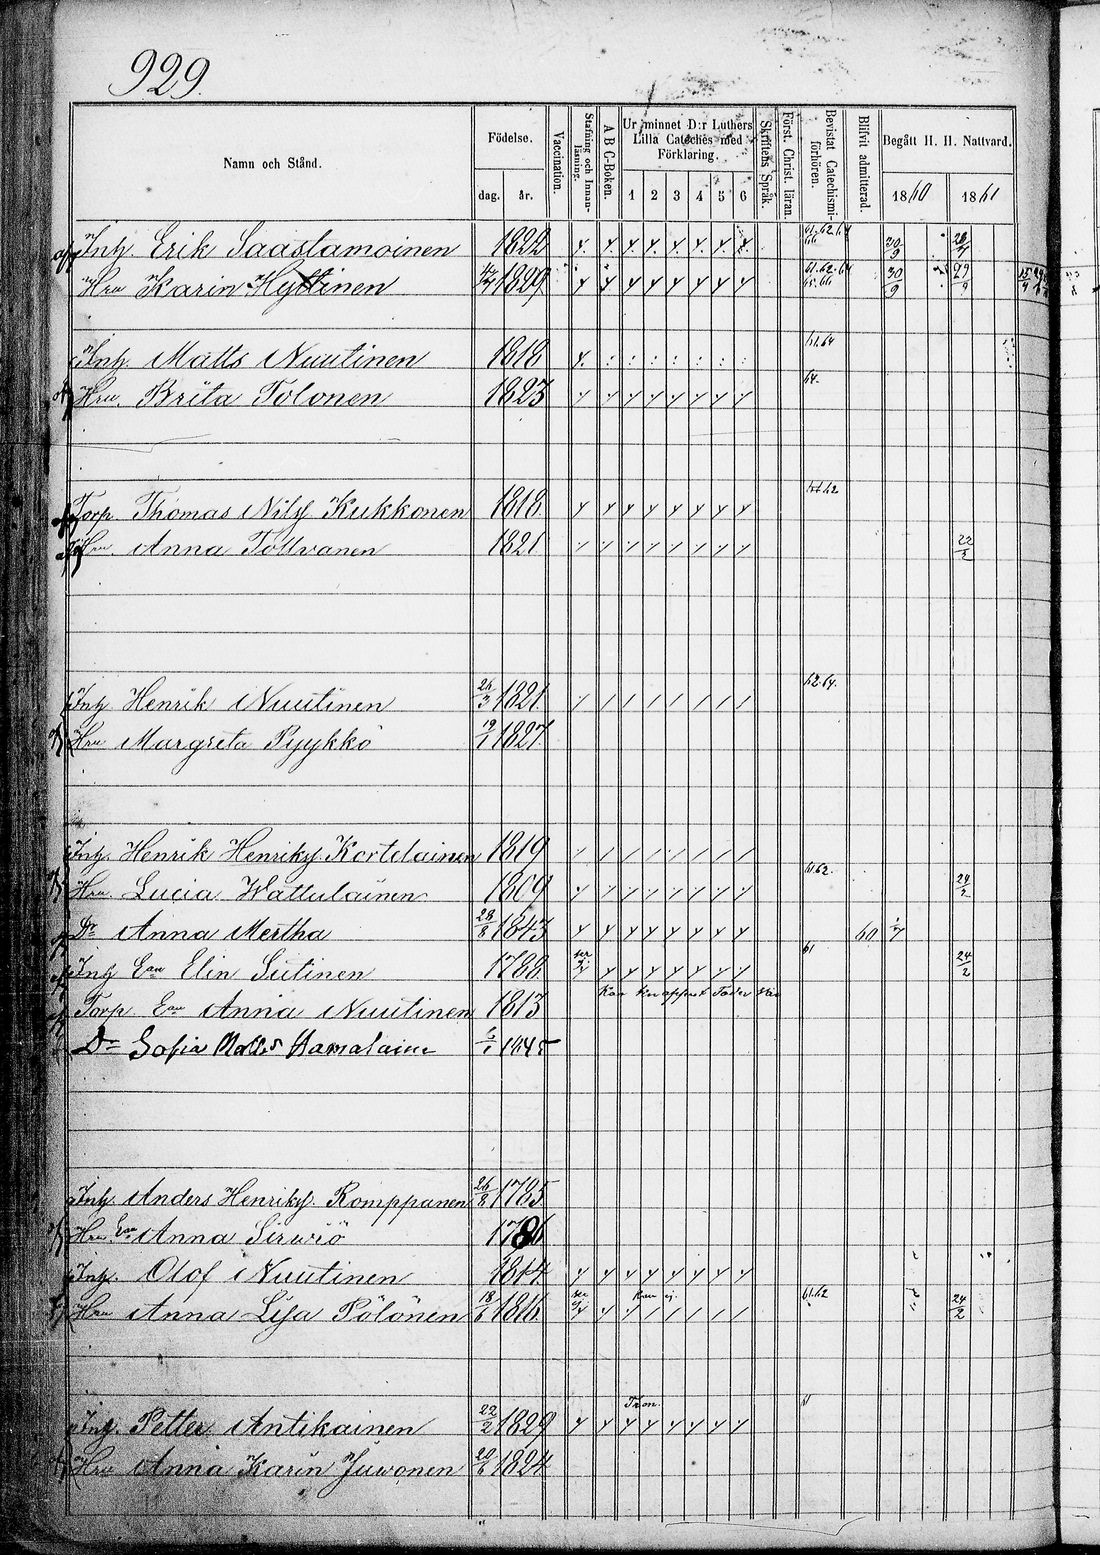 929.
Namn och Stånd. Födelse. Vaccination. Stafning och Innanläsning. A B C-Boken. Ur minnet D:r Luthers Lilla Cateches med Förklaring. Skriftens Språk. Först. Christ. läran. Bevistat Catechismiförhören. Blifvit admitterad. Begått H. H. Nattvard.
dag. år. 1 2 3 4 5 6 1860 1861
Inh. Erik Saastamoinen 1822 61.62.64 66 20/9
Hru Karin Hyttinen 1829 61.62.64 65.66 30/9 29/9
Inh. Matts Nuutinen 1818 61.64
Hru. Brita Tolonen 1823 64.
Torp. Thomas Nilss Kukkonen 1818 62
Hru. Anna Tollvanen 1821 22/2
Inh Henrik Nuutinen 26/3 1821 62.64.
Hru Margreta Pyykkö 19/1 1827
Inh. Henrik Henrikss. Kortelainen 1819
Hru. Lucia Wattulainen 1809 61.62. 24/2
Dr Anna Mertha 28/8 1843 60 1/7
Inh Ean Elin Sutinen 1788 61 24/2
Kan knappast Fader Vår
Torp. Ean Anna Nuutinen 1813
Dr Sofia Matts Hamalain 6/1 1845
Inh. Anders Henrikss. Romppanen 26/8 1785
Hru Ean Anna Sirwiö 1786
Inh. Olof Nuutinen 1814
Hru Anna Lisa Pölönen 18/6 1816 Kan ej. 61.62 24/2
Inh. Petter Antikainen 22/2 1829 Tron.
Hru Anna Karin Juwonen 20/6 1824